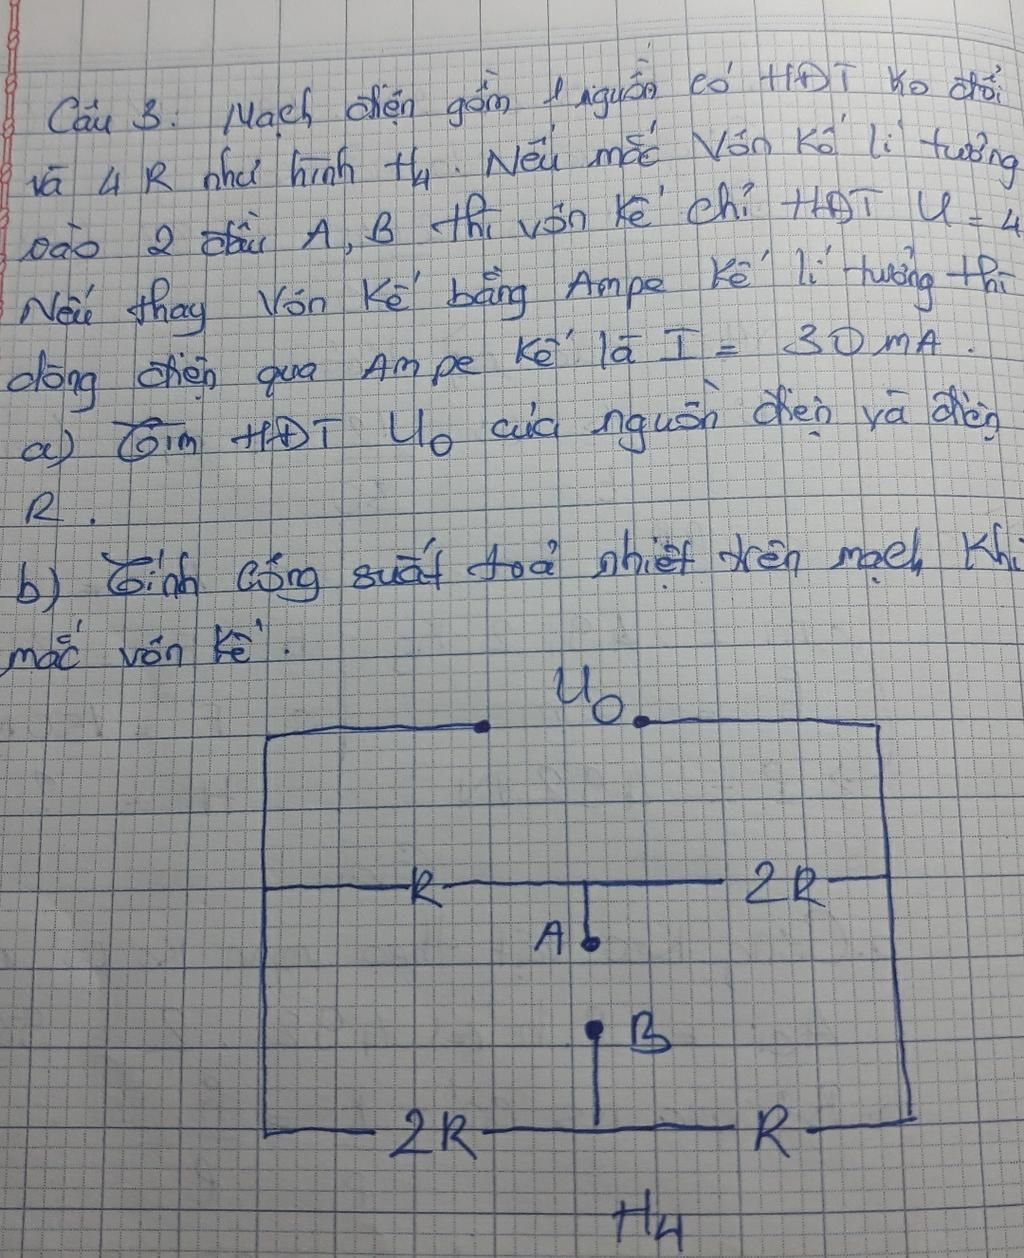 Câu 3. Mạch điện gồm 1 nguồn có HĐT ko đổi
và 4 R như hình H4. Nếu mắc Vôn kế lí tưởng
vào 2 đầu A, B thì vôn kế chỉ HĐT U = 4
Nếu thay Vôn kế bằng Ampe kế lí tưởng thì
dòng điện qua Ampe kế là I = 30 mA.
a) Tìm HĐT U0 của nguồn điện và điện
R.
b) Tính công suất toả nhiệt trên mạch khi
mắc vôn kế.
U0
R 2R
A
B
2R R
H4